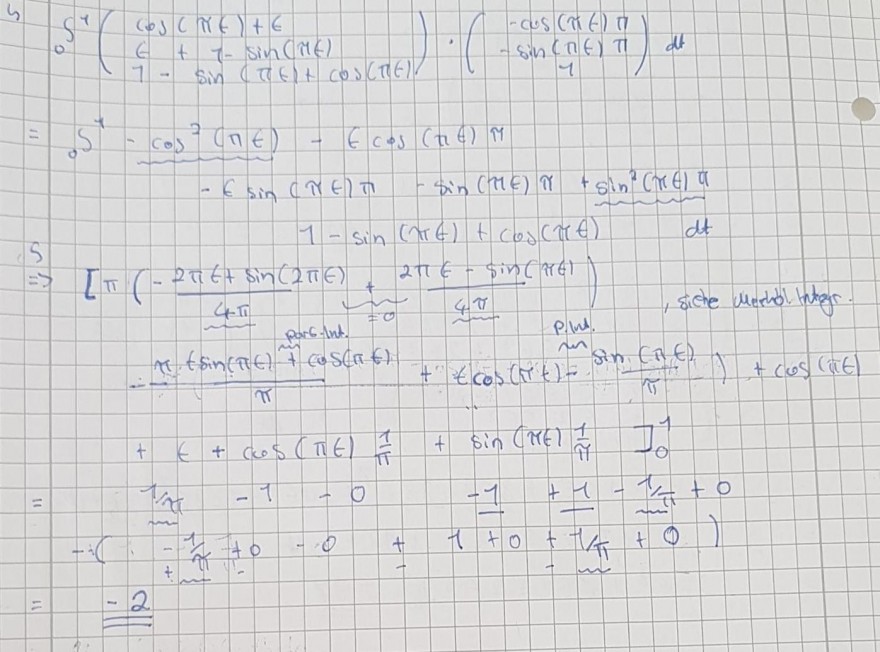 ∫₀¹ ( cos(πt)+t
t + 1- sin(πt)
1 - sin(πt)+ cos(πt) ) · ( -cos(πt)π
-sin(πt)π
1 ) dt
= ∫₀¹ - cos²(πt) - t cos(πt)π
- t sin(πt)π - sin(πt)π + sin²(πt)π
1 - sin(πt) + cos(πt) dt
S
=> [π ( - 2πt + sin(2πt) / 4π + 2πt - sin(πt) / 4π )
=0
, siehe Integr.
part. Int. p. Int.
- π t sin(πt) + cos(πt) / π + t cos(πt) - sin(πt) / π ) + cos(πt)
+ t + cos(πt) 1/π + sin(πt) 1/π ]₀¹
= 1/π - 1 - 0 - 1 + 1 - 1/π + 0
- ( - 1/π + 0 - 0 + 1 + 0 + 1/π + 0 )
= - 2